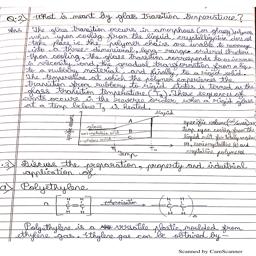 Q.2) What is meant by glass transition temperature?
Ans The glass transition occurs in amorphous (on glassy) polymer
when upon cooling from the liquid, crystallization does not
take place ie the polymer chains are unable to arrange
into a three dimensional, long-range ordered
Upon cooling, the glass transition corresponds to
to viscosity with gradual transformation from a liq.
to a rubbery material and finally, to a rigid solid.
The temperature at which the polymer experiences the
transition from rubbery to rigid states is termed as the
glass transition temperature (Tg). These sequences of
events occurs in the reverse order when a rigid glass
at a temp below Tg is heated.
liquid
A
B
Temp
specific volume
temp upon cooling from the
liquid
crystalline polymers
3) Discuss the preparation, property and industrial
application of
a) Polyethylene
n
C = C
polymerisation
C - C
n
Polyethylene is a versatile plastic moulded from
ethylene gas. Ethylene gas can be obtained by
Scanned by CamScanner